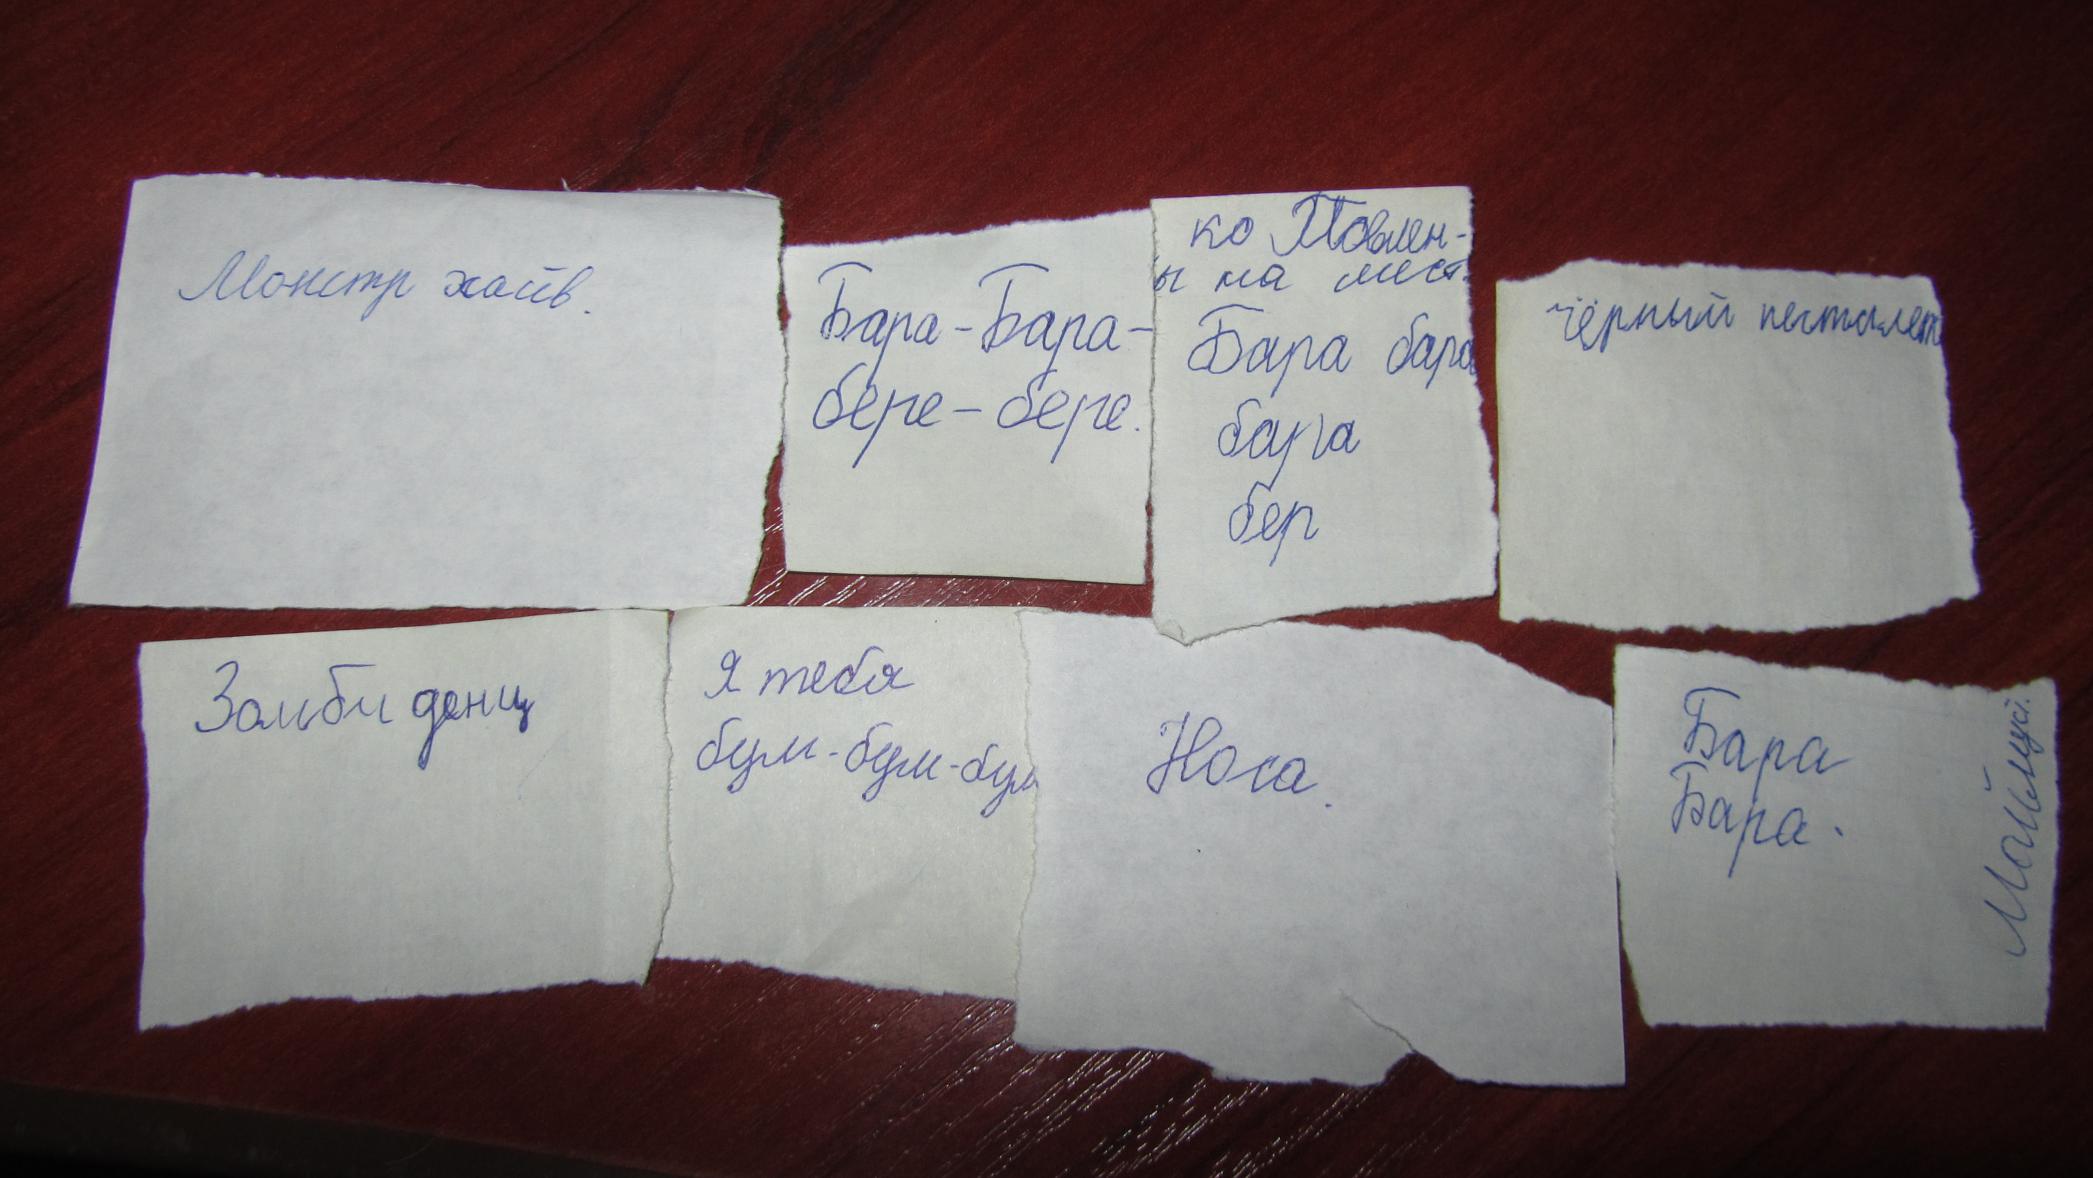 Монстр хайв.
Бара-Бара-
бере-бере.
ко
ы на мест.
Бара бара
бара
бер
чёрный пестолет
Зомби денц
Я тебя
бум-бум-бум
Носа.
Бара
Бара.